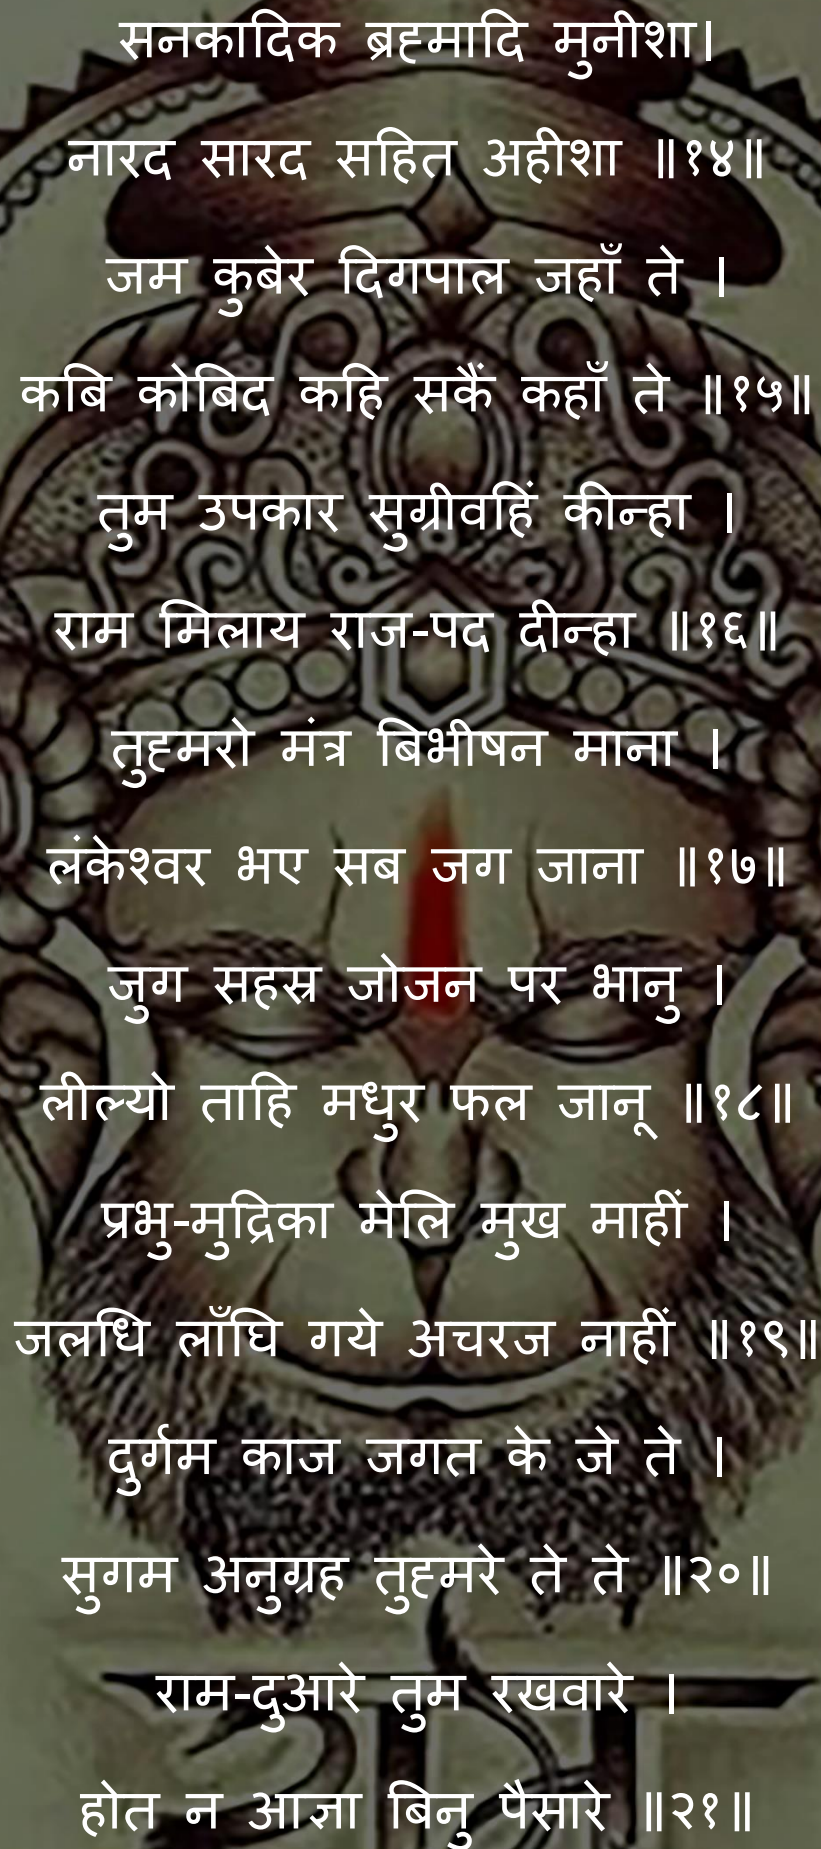 सनकादिक ब्रह्मादि मुनीशा।
नारद सारद सहित अहीशा ॥१४॥
जम कुबेर दिगपाल जहाँ ते ।
कबि कोबिद कहि सकैं कहाँ ते ॥१५॥
तुम उपकार सुग्रीवहिं कीन्हा ।
राम मिलाय राज-पद दीन्हा ॥१६॥
तुह्मरो मंत्र बिभीषन माना ।
लंकेश्वर भए सब जग जाना ॥१७॥
जुग सहस्र जोजन पर भानु ।
लील्यो ताहि मधुर फल जानू ॥१८॥
प्रभु-मुद्रिका मेलि मुख माहीं ।
जलधि लाँघि गये अचरज नाहीं ॥१९॥
दुर्गम काज जगत के जे ते ।
सुगम अनुग्रह तुह्मरे ते ते ॥२०॥
राम-दुआरे तुम रखवारे ।
होत न आज्ञा बिनु पैसारे ॥२१॥